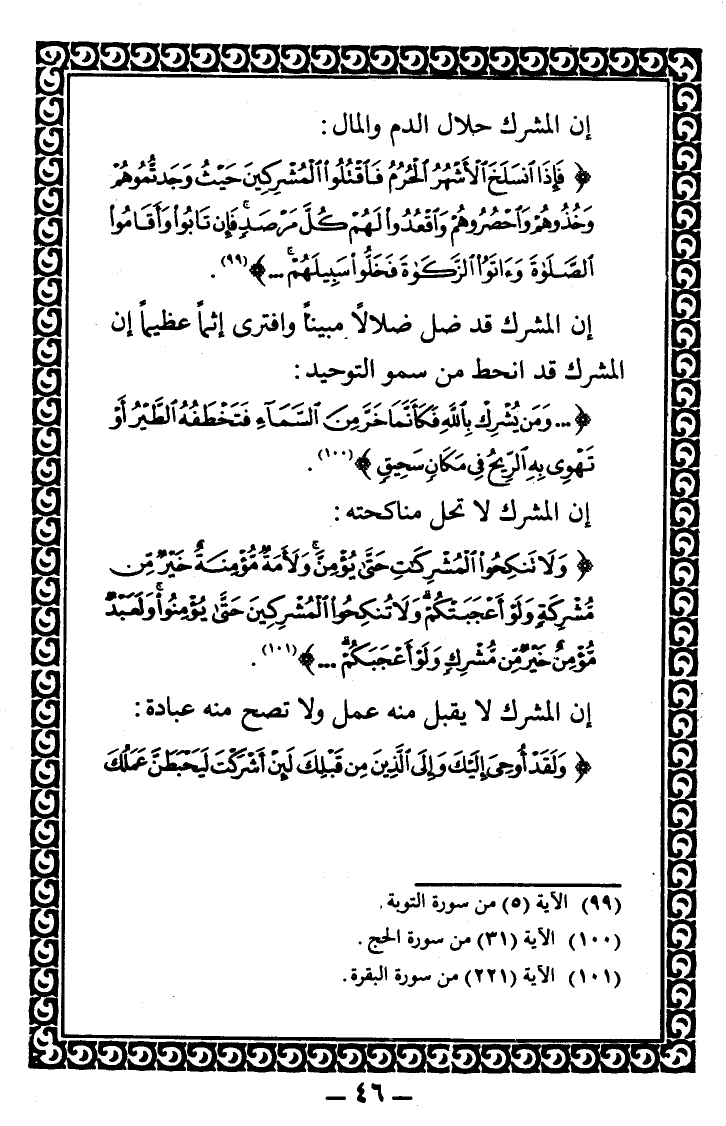 إن المشرك حلال الدم والمال :
﴿ فَإِذَا ٱنسَلَخَ ٱلْأَشْهُرُ ٱلْحُرُمُ فَٱقْتُلُوا۟ ٱلْمُشْرِكِينَ حَيْثُ وَجَدتُّمُوهُمْ
وَخُذُوهُمْ وَٱحْصُرُوهُمْ وَٱقْعُدُوا۟ لَهُمْ كُلَّ مَرْصَدٍ ۚ فَإِن تَابُوا۟ وَأَقَامُوا۟
ٱلصَّلَوٰةَ وَءَاتَوُا۟ ٱلزَّكَوٰةَ فَخَلُّوا۟ سَبِيلَهُمْ ۚ ... ﴾ (٩٩) .
إن المشرك قد ضل ضلالاً مبيناً وافترى إثماً عظيماً إن
المشرك قد انحط من سمو التوحيد :
﴿ ... وَمَن يُشْرِكْ بِٱللَّهِ فَكَأَنَّمَا خَرَّ مِنَ ٱلسَّمَآءِ فَتَخْطَفُهُ ٱلطَّيْرُ أَوْ
تَهْوِى بِهِ ٱلرِّيحُ فِى مَكَانٍ سَحِيقٍ ﴾ (١٠٠) .
إن المشرك لا تحل مناكحته :
﴿ وَلَا تَنكِحُوا۟ ٱلْمُشْرِكَٰتِ حَتَّىٰ يُؤْمِنَّ ۚ وَلَأَمَةٌ مُّؤْمِنَةٌ خَيْرٌ مِّن
مُّشْرِكَةٍ وَلَوْ أَعْجَبَتْكُمْ ۗ وَلَا تُنكِحُوا۟ ٱلْمُشْرِكِينَ حَتَّىٰ يُؤْمِنُوا۟ ۚ وَلَعَبْدٌ
مُّؤْمِنٌ خَيْرٌ مِّن مُّشْرِكٍ وَلَوْ أَعْجَبَكُمْ ۗ ... ﴾ (١٠١) .
إن المشرك لا يقبل منه عمل ولا تصح منه عبادة :
﴿ وَلَقَدْ أُوحِىَ إِلَيْكَ وَإِلَى ٱلَّذِينَ مِن قَبْلِكَ لَئِنْ أَشْرَكْتَ لَيَحْبَطَنَّ عَمَلُكَ
(٩٩) الآية (٥) من سورة التوبة .
(١٠٠) الآية (٣١) من سورة الحج .
(١٠١) الآية (٢٢١) من سورة البقرة .
— ٤٦ —